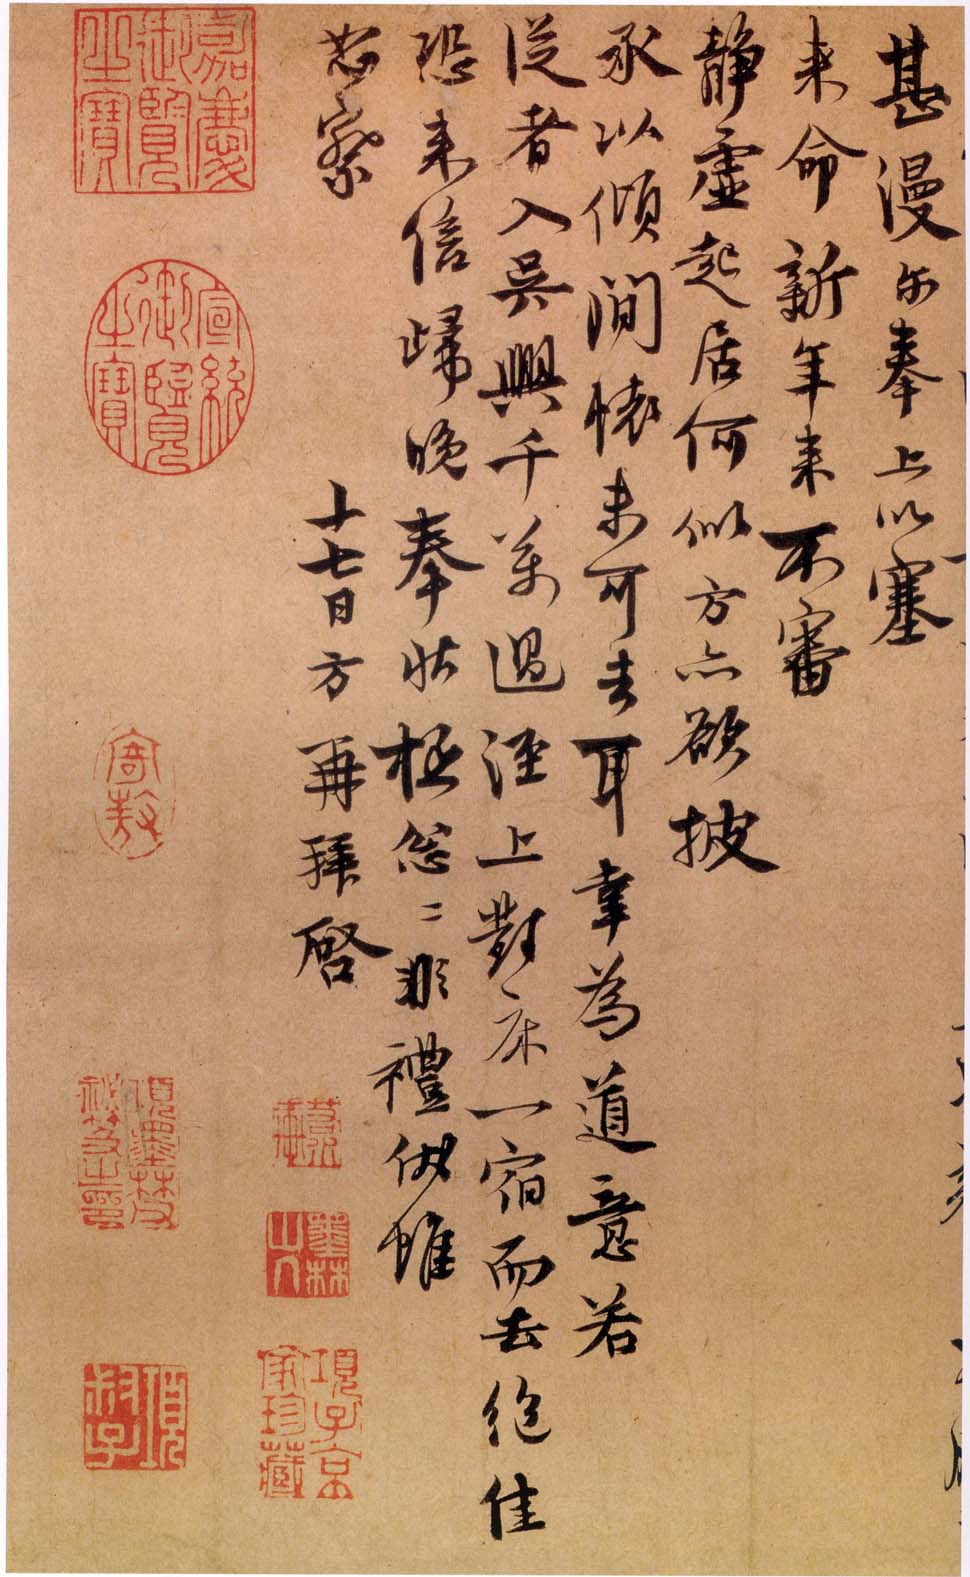 甚漫尓奉上以塞
来命新年来不審
静虚起居何似方亦欲披
承以傾間懐未可去耳幸為道意若
従者入吴興千萬過涇上對床一宿而去絶佳
恐来信歸晚奉状極怱〻非禮俲惟
恕察
十七日方再拜啓
嘉慶御覽之寶
宣統御覽之寶
寄敖
墨林山人
項子京家珍藏
項墨林父秘笈之印
項叔子